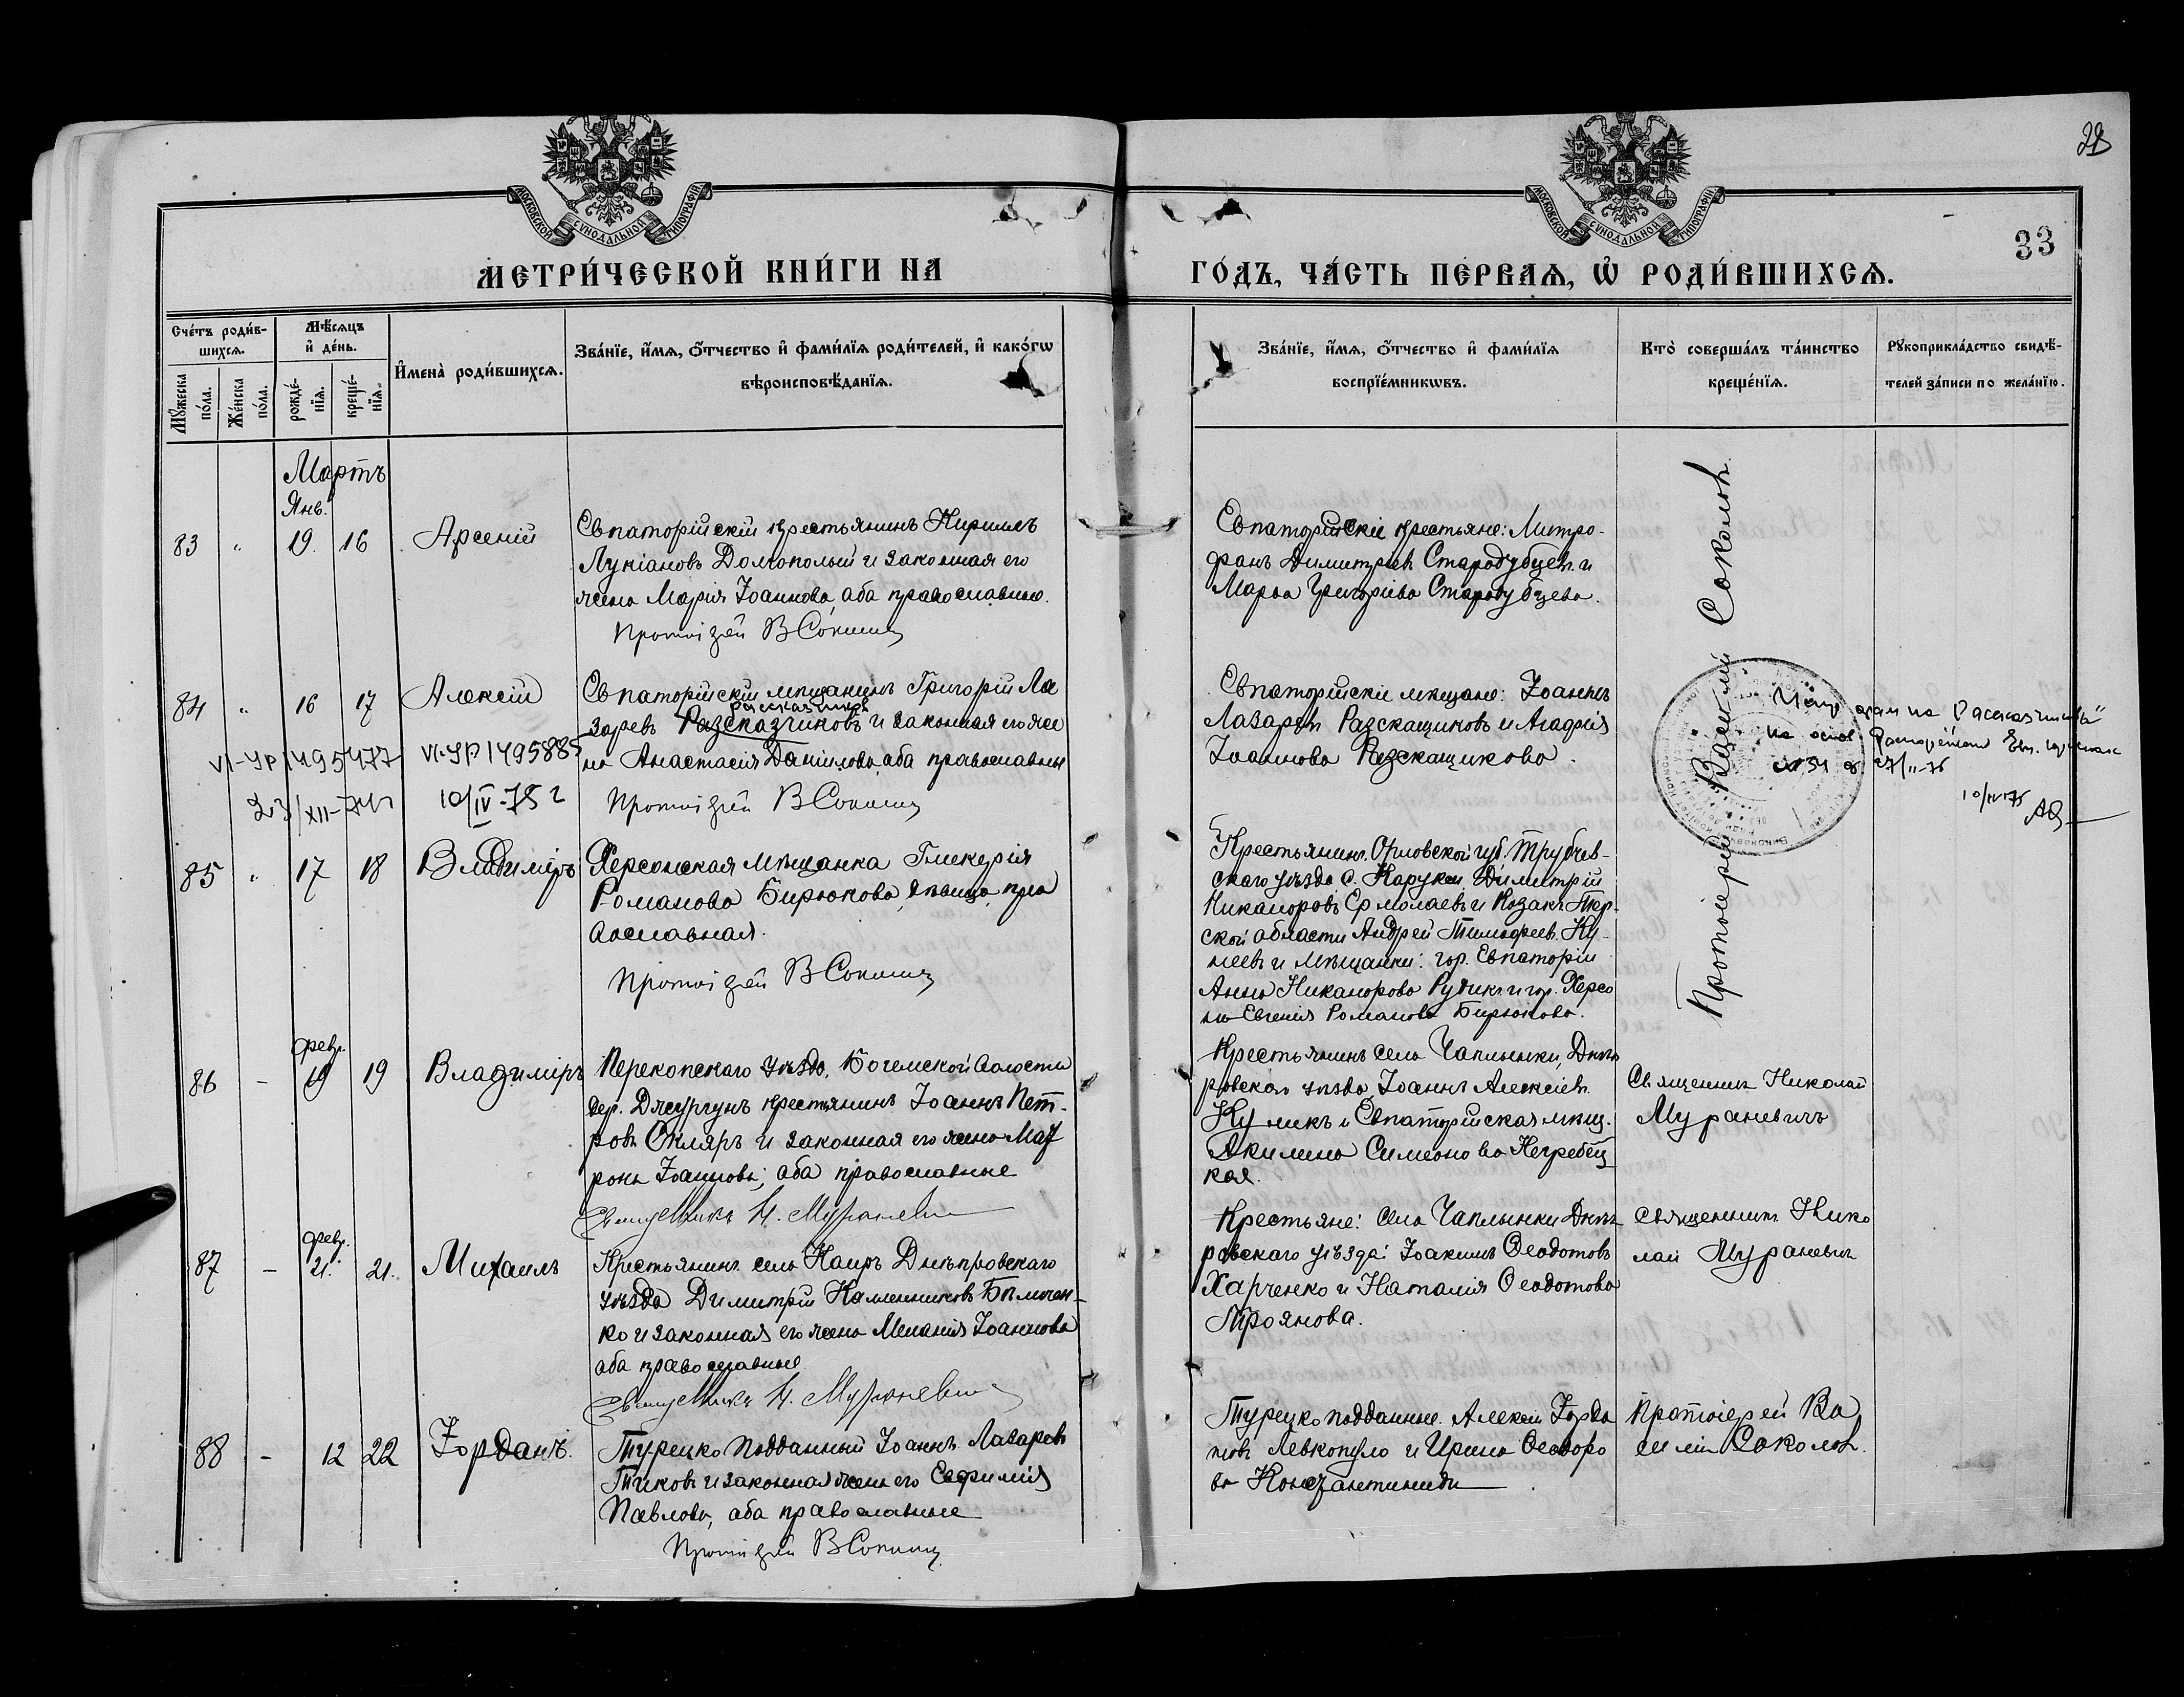 МОСКОВСКОЙ СѴНОДАЛЬНОЙ ТИПОГРАФІИ
МОСКОВСКОЙ СѴНОДАЛЬНОЙ ТИПОГРАФІИ
33
МЕТРИ́ЧЕСКОЙ КНИ́ГИ НА
ГО́ДЪ, ЧА́СТЬ ПЕ́РВАЯ, Ѡ РОДИ́ВШИХСЯ.
Сче́тъ роди́в-
шихся.
Мꙋ́жеска
по́ла.
Же́нска
по́ла.
Мѣ́сяцъ
и҆ де́нь.
рожде́-
нїя.
креще́-
нїя.
И҆мена̀ роди́вшихся.
Зва́нїе, и҆́мя, ѻ҆́тчество и҆ фами́лїя роди́телей, и҆ како́гѡ
вѣроисповѣ́данїя.
Зва́нїе, и҆́мя, ѻ҆́тчество и҆ фами́лїя
воспрїе́мникѡвъ.
Кто̀ соверша́лъ та́инство
креще́нїя.
Рꙋкоприкла́дство свидѣ́-
телей за́писи по жела́нїю.
Мартъ
Янв.
83 " 19. 16 Арсеній
Евпаторійскій крестьянинъ Кириллъ
Лукіановъ Долгополый и законная его
жена Марія Іоаннова, оба православные.
Протоіерей В Соколовъ
Евпаторійскіе крестьяне: Митро-
фанъ Димитріевъ Стародубцевъ и
Марѳа Григоріева Стародубцева.
84 " 16 17 Алексій
Евпаторійскій мѣщанинъ Григорій Ла
заревъ Разсказчиковъ и законная его же
на Анастасія Даніилова, оба православные
Протоіерей В Соколовъ
VI-УР 1495477
23/XII-
VI-УР 1495885
10/IV-75 г
Евпаторійскіе мѣщане: Іоаннъ
Лазаревъ Разскащиковъ и Агафія
Іоаннова Разскащикова.
на основ.
№ 31 от 27/II-75
10/IV 75
85 " 17 18 Владиміръ
Херсонская мѣщанка Гликерія
Романова Бирюкова, дѣвица, пра
вославная.
Протоіерей В Соколовъ
Крестьянинъ Орловской губ. Трубчев-
скаго уѣзда с. Димитрій
Никаноровъ Ермолаевъ и Козакъ Тер-
ской области Андрей Тимоѳеевъ Ку-
и мѣщанки: гор. Евпаторіи
Анна Никанорова и гор. Херсо
на Евгенія Романова Бирюкова.
Протоіерей Василій Соколовъ.
Февр.
86 - 19 19 Владиміръ
Перекопскаго уѣзда, Богемской волости
дер. Джургунъ крестьянинъ Іоаннъ Пет-
ровъ Скляръ и законная его жена Мат
рона Іоаннова; оба православные
Священникъ Н. Мураневичъ
Крестьянинъ села Чаплынки, Днѣп
ровскаго уѣзда, Іоаннъ Алексіевъ
Куликъ и Евпаторійская мѣщ.
Акилина Симеонова Негребец
кая.
Священникъ Николай
Мураневичъ
Февр.
87 - 21. 21. Михаилъ
Крестьянинъ села Каиръ Днѣпровскаго
уѣзда Димитрій
ко и законная его жена Меланія Іоаннова
оба православные.
Священникъ Н. Мураневичъ
Крестьяне: села Чаплынки Днѣп
ровскаго уѣзда: Іоакимъ Ѳеодотовъ
Харченко и Наталія Ѳеодотова
Троянова.
Священникъ Нико
лай Мураневичъ
88 - 12 22 Іорданъ.
Турецкоподданный Іоаннъ Лазаревъ
Тиковъ и законная жена его Евфимія
Павлова, оба православные
Протоіерей В Соколовъ
Турецкоподданные. Алексій Іорда
новъ Левкопуло и Ирина Ѳеодоро
ва Константиниди
Протоіерей Ва
силій Соколовъ.